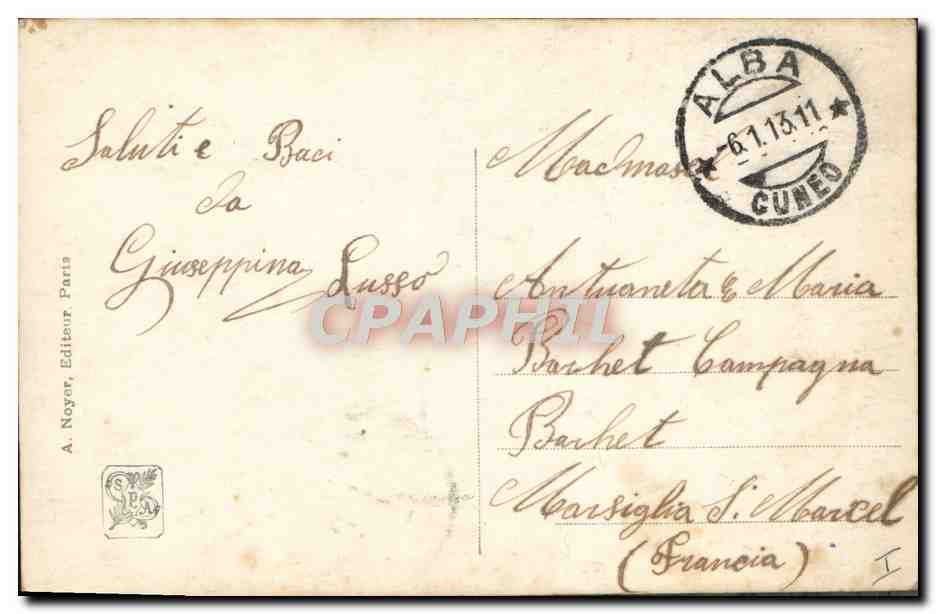 Saluti e Baci
da
Giuseppina Lusso
A. Noyer, Editeur Paris
ALBA
-6.1.13.11
CUNEO
Madmoselle
Antuaneta e Maria
Barhet Campagna
Barhet
Marsiglia S. Marcel
(Francia)
I
CPAPHIL